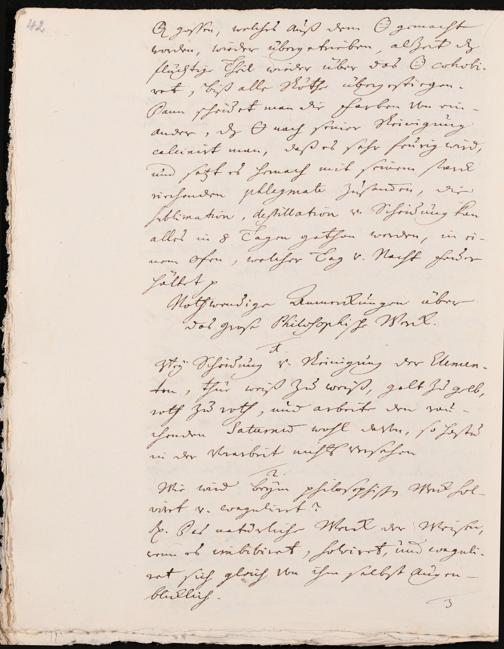 42
gossen, welches auß dem 🜔 gemacht
worden, wieder übergetrieben, allzeit dz
flüchtige Theil wieder über das 🜔 cohobi-
ret, biß alle Röthe übergestiegen.
Dann scheidet man die Farben von ein-
ander, dz 🜔 nach seiner Reinigung
calcinirt man, daß es sehr feurig wird,
und setzt es hernach mit seinem stark
riechenden phlegmate zusamen, die
sublimation, destillation v. Scheidung kan
alles in 8 Tagen gethan werden, in ei-
nem Ofen, welcher Tag v. Nacht Feuer
hältet
Nothwendige Anmerkungen über
das große Philosophische Werk.
1
Bey Scheidung v. Reinigung der Elemen-
ten, thue weiß zu weiß, gelb zu gelb,
roth zu roth, und arbeite den rau-
chenden Saturnus wohl davon, so hastu
in der Vorarbeit nichts versehen
2.
Wie wird beym philosophischen Werk sol-
virt v. coagulirt?
Rx. Das natürliche Werk der Weisen,
wenn es imbibiret, solviret, und coaguli-
ret sich gleich von ihm selbst augen-
blicklich.
3